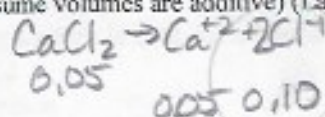 sume volumes are additive)
CaCl₂ → Ca⁺² + 2Cl⁻¹
0.05
.005 0.10